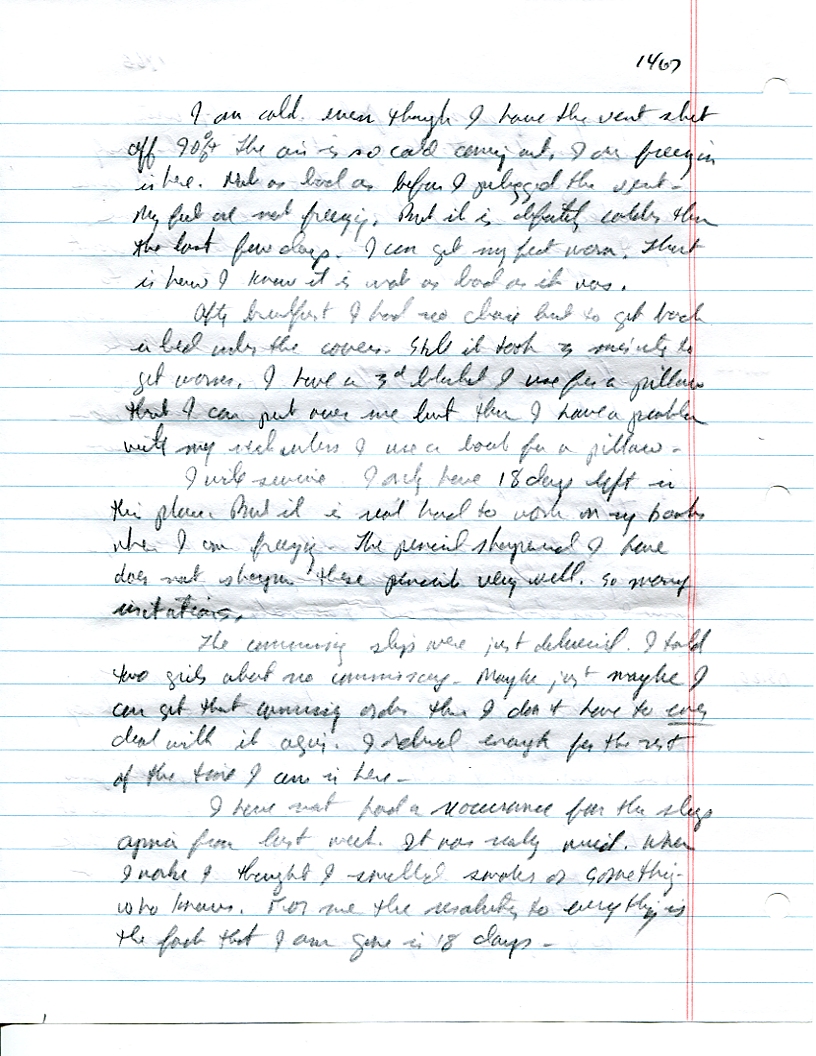 1467
I am cold even though I have the vent shut
off 90%+ the air is so cold coming out, I am freezin
in here. Not as bad as before I plugged the vent-
My feet are not freezing. But it is definitely colder than
the last few days. I can get my feet warm. That
is how I know it is not as bad as it was.
After breakfast I had no choice but to get back
in bed under the covers. Still it took 3 minutes to
get warm. I have a 3rd blanket I use for a pillow
that I can put over me but then I have a problem
with my neck unless I use a book for a pillow-
I will survive I only have 18 days left in
this place. But it is hard to work on my books
when I am freezing- The pencil sharpener I have
does not sharpen these pencils very well. So many
irritations.
The commissary slips were just delivered. I told
two girls about no commissary- Maybe just maybe I
can get that commissary order then I don't have to ever
deal with it again. I ordered enough for the rest
of the time I am in here-
I have not had a recurrance from the sleep
apnea from last week. It was really weird. When
I woke I thought I smelled smoke or something-
who knows. For me the resolution to everything is
the fact that I am gone in 18 days-